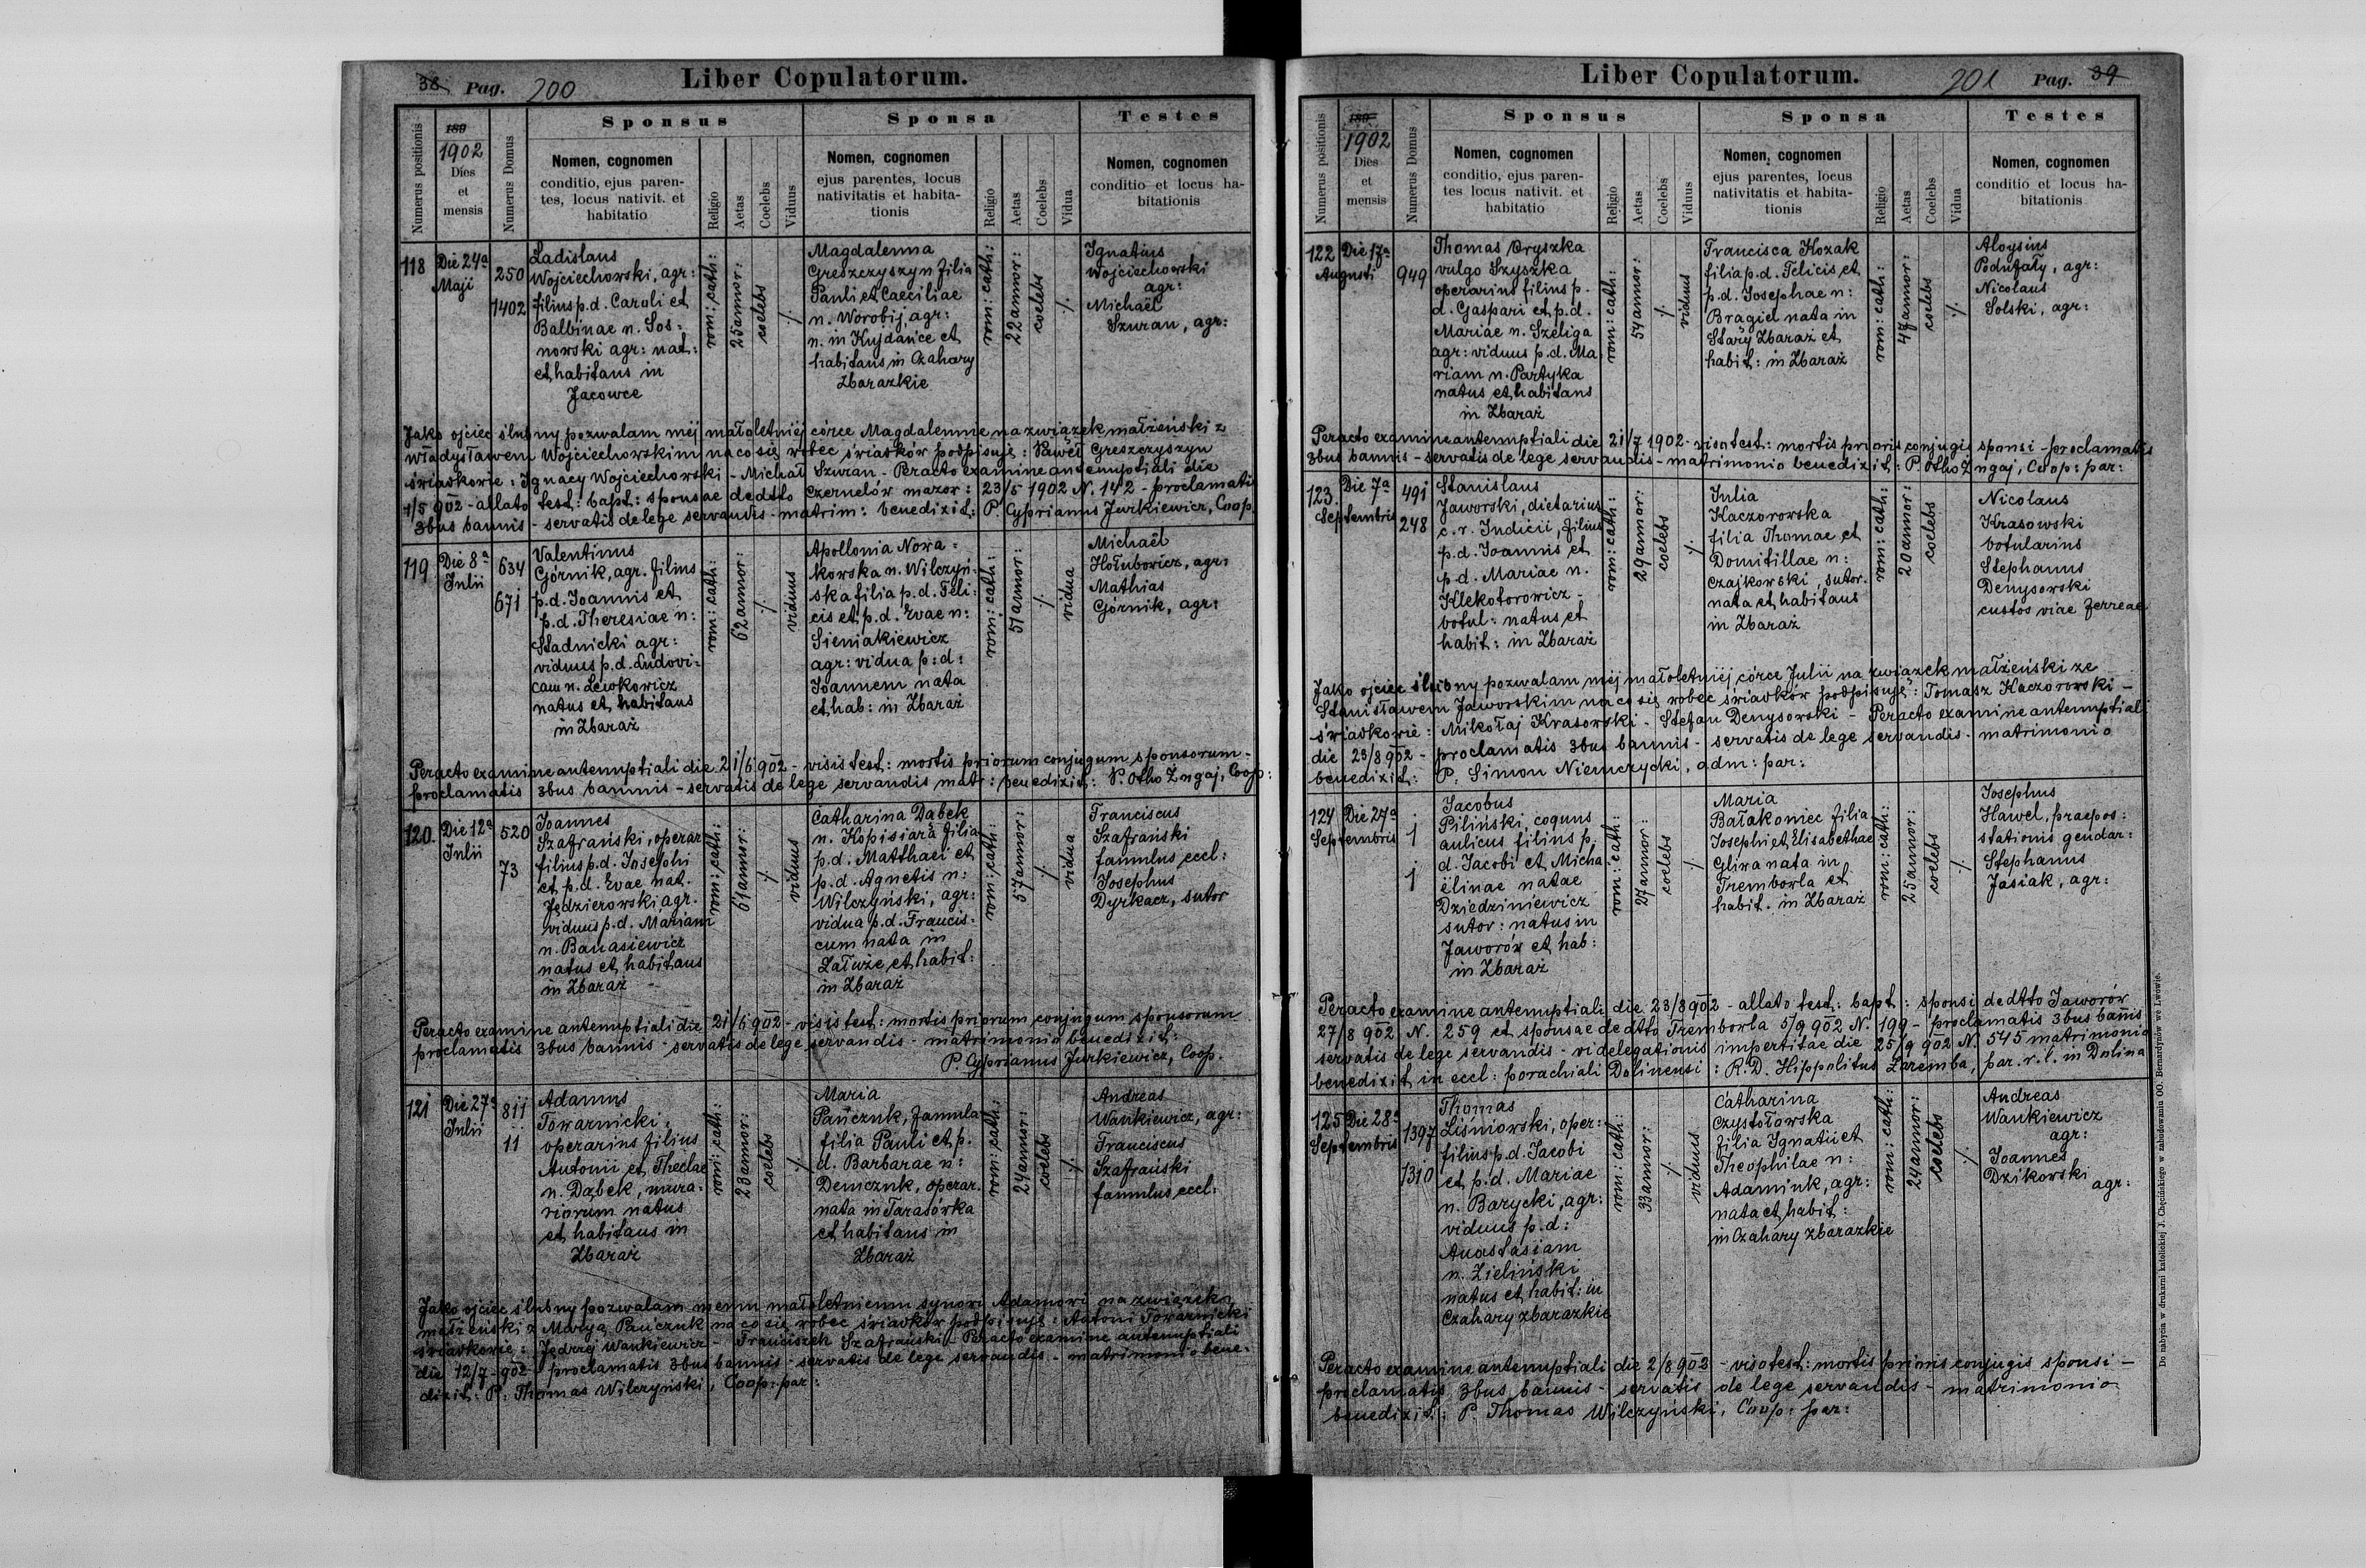 38 Pag. 200
Liber Copulatorum.
Numerus positionis
189
1902
Dies
et
mensis
Numerus Domus
Sponsus
Nomen, cognomen
conditio, ejus paren-
tes, locus nativit. et
habitatio
Religio
Aetas
Coelebs
Viduus
Sponsa
Nomen, cognomen
ejus parentes, locus
nativitatis et habita-
tionis
Religio
Aetas
Coelebs
Vidua
Testes
Nomen, cognomen
conditio et locus ha-
bitationis
118
Die 24a
Maji
250
1402
Ladislaus
Wojciechowski, agr:
filius p.d. Caroli et
Balbinae n. Sos=
nowski agr: nat:
et habitans in
Jacowce
rom: cath:
25 annor:
coelebs
./.
Magdalenna
Greszczyszyn filia
Pauli et Caeciliae
n. Worobij, agr:
n. in Kujdańce et
habitans in Czahary
Zbarazkie
rom: cath:
22 annor:
coelebs
./.
Ignatius
Wojciechowski
agr:
Michaël
Szuran, agr:
Jako ojciec ślubny pozwalam mej małoletniej córce Magdalenne na związek małżeński z
Władysławem Wojciechowskim na co się wobec świadków podpisuję: Paweł Greszczyszyn
świadkowie: Ignacy Wojciechowski - Michał Szuran - Peracto examine antenuptiali die
1/5 902 - allato test: bapt: sponsae de dtto Czernelów mazow: 23/5 1902 N. 142 - proclamatis
3bus bannis - servatis de lege servandis - matrim: benedixit: P. Cyprianus Jurkiewicz, Coop.
119
Die 8a
Julii
634
671
Valentinus
Górnik, agr. filius
p.d. Joannis et
p.d. Theresiae n:
Stadnicki agr:
viduus p.d. Ludovi=
cam n. Lewkowicz
natus et habitans
in Zbaraż
rom: cath:
62 annor:
./.
viduus
Apollonia Nowa=
kowska n. Wilczyń=
ska filia p.d. Feli=
cis et p.d. Evae n:
Sieniakiewicz
agr: vidua p:d:
Joannem nata
et hab: in Zbaraż
rom: cath:
51 annor:
./.
vidua
Michaël
Hołubowicz, agr:
Mathias
Górnik, agr:
Peracto examine antenuptiali die 21/6 902 - visis test: mortis priorum conjugum sponsorum -
proclamatis 3bus bannis - servatis de lege servandis matr: benedixit: P. Otho Zngaj, Coop:
120.
Die 12a
Julii
520
73
Joannes
Szafrański, operar
filius p.d. Josephi
et p.d. Evae nat.
Jędzierowski agr.
viduus p.d. Mariam
n. Banasiewicz
natus et habitans
in Zbaraż
rom: cath:
61 annor:
./.
viduus
Catharina Dąbek
n. Kopisiara filia
p.d. Matthaei et
p.d. Agnetis n:
Wilczyński, agr:
vidua p.d. Francis=
cum nata in
Załuże et habit:
in Zbaraż
rom: cath:
57 annor:
./.
vidua
Franciscus
Szafrański
famulus eccl:
Josephus
Dyrkacz, sutor
Peracto examine antenuptiali die 21/6 902 - visis test: mortis priorum conjugum sponsorum
proclamatis 3bus bannis - servatis de lege servandis - matrimonio benedixit:
P. Cyprianus Jurkiewicz, Coop.
121
Die 27a
Julii
811
11
Adamus
Towarnicki,
operarius filius
Antonii et Theclae
n. Dąbek, mura=
riorum natus
et habitans in
Zbaraż
rom: cath:
23 annor:
coelebs
./.
Maria
Pańczuk, famula
filia Pauli et p.
d. Barbarae n:
Demczuk, operar.
nata in Tarasówka
et habitans in
Zbaraż
rom: cath:
24 annor:
coelebs
./.
Andreas
Wankiewicz, agr:
Franciscus
Szafrański
famulus eccl:
Jako ojciec ślubny pozwalam memu małoletniemu synowi Adamowi na związek
małżeński z Maryą Pańczuk na co się wobec świadków podpisuję: Antoni Towarnicki
świadkowie: Jędrzej Wankiewicz - Franciszek Szafrański - Peracto examine antenuptiali
die 12/7 - 902 - proclamatis 3bus bannis - servatis de lege servandis - matrimonio bene=
dixit: P. Thomas Wilczyński, Coop: par:
Liber Copulatorum.
201 Pag. 39
Numerus positionis
189
1902
Dies
et
mensis
Numerus Domus
Sponsus
Nomen, cognomen
conditio, ejus paren-
tes locus nativit. et
habitatio
Religio
Aetas
Coelebs
Viduus
Sponsa
Nomen, cognomen
ejus parentes, locus
nativitatis et habita-
tionis
Religio
Aetas
Coelebs
Vidua
Testes
Nomen, cognomen
conditio et locus ha-
bitationis
122
Die 17a
Augusti
949
Thomas Oryszka
vulgo Szyszka
operarius filius p.
d. Gaspari et p.d.
Mariae n. Szeliga
agr: viduus p.d. Ma
riam n. Partyka
natus et habitans
in Zbaraż
rom: cath:
54 annor:
./.
viduus
Francisca Kozak
filia p.d. Felicis et
p.d. Josephae n:
Bragiel nata in
Stary Zbaraż et
habit: in Zbaraż
rom: cath:
47 annor:
coelebs
./.
Aloysius
Podufały, agr:
Nicolaus
Solski, agr:
Peracto examine antenuptiali die 21/7 1902 - viso test: mortis prioris conjugis sponsi - proclamatis
3bus bannis - servatis de lege servandis - matrimonio benedixit: P. Otho Zngaj, Coop: par:
123.
Die 7a
Septembris
491
248
Stanislaus
Jaworski, dietarius
c.r. Judicii, filius
p.d. Joannis et
p.d. Mariae n.
Klekotorowicz -
votul: natus et
habit: in Zbaraż
rom: cath:
29 annor:
coelebs
./.
Julia
Kaczorowska
filia Thomae et
Domitillae n:
Czajkowski, sutor.
nata et habitans
in Zbaraż
rom: cath:
20 annor:
coelebs
Nicolaus
Krasowski
votularius
Stephanus
Denysowski
custos viae ferreae
Jako ojciec ślubny pozwalam mej małoletniej córce Julii na związek małżeński ze
Stanisławem Jaworskim na co się wobec świadków podpisuję: Tomasz Kaczorowski -
świadkowie: Mikołaj Krasowski - Stefan Denysowski - Peracto examine antenuptiali
die 23/8 902 - proclamatis 3bus bannis - servatis de lege servandis - matrimonio
benedixit: P. Simon Niemczycki, adm: par:
124
Die 27a
Septembris
1
1
Jacobus
Piliński coquus
aulicus filius p.
d. Jacobi et Micha
ëlinae natae
Dziedziniewicz
sutor: natus in
Jaworów et hab:
in Zbaraż
rom: cath:
27 annor:
coelebs
./.
Maria
Bałakoniec filia
Josephi et Elisabethae
Gliwa nata in
Tremborla et
habit. in Zbaraż
rom: cath:
25 annor:
coelebs
./.
Josephus
Hawel, praepos:
stationis gendar:
Stephanus
Jasiak, agr:
Peracto examine antenuptiali die 23/8 902 - allato test: bapt: sponsi de dtto Jaworów
27/8 902 N. 259 et sponsae de dtto Tremborla 5/9 902 N. 199 - proclamatis 3bus bannis
servatis de lege servandis - vi delegationis impertitae die 25/9 902 N. 545 matrimonio
benedixit in eccl: porachiali Dolinensi: R.D. Hippolitus Zaremba, par. r.l. in Dolina
125
Die 28a
Septembris
1397
1310
Thomas
Liśniowski, oper:
filius p.d. Jacobi
et p.d. Mariae
n. Barycki, agr:
viduus p.d:
Anastasiam
n. Zieliński
natus et habit: in
Czahary zbarazkie
rom: cath:
33 annor:
./.
viduus
Catharina
Czystołowska
filia Ignatii et
Theophilae n:
Adamiuk, agr:
nata et habit:
in Czahary zbarazkie
rom: cath:
24 annor:
coelebs
./.
Andreas
Wankiewicz
agr:
Joannes
Dzikowski
agr:
Peracto examine antenuptiali die 2/8 903 - viso test: mortis prioris conjugis sponsi -
proclamatis 3bus bannis - servatis de lege servandis - matrimonio
benedixit: P. Thomas Wilczyński, Coop: par:
Do nabycia w drukarni katolickiej J. Chęcińskiego w zabudowaniu OO. Bernardynów we Lwowie.